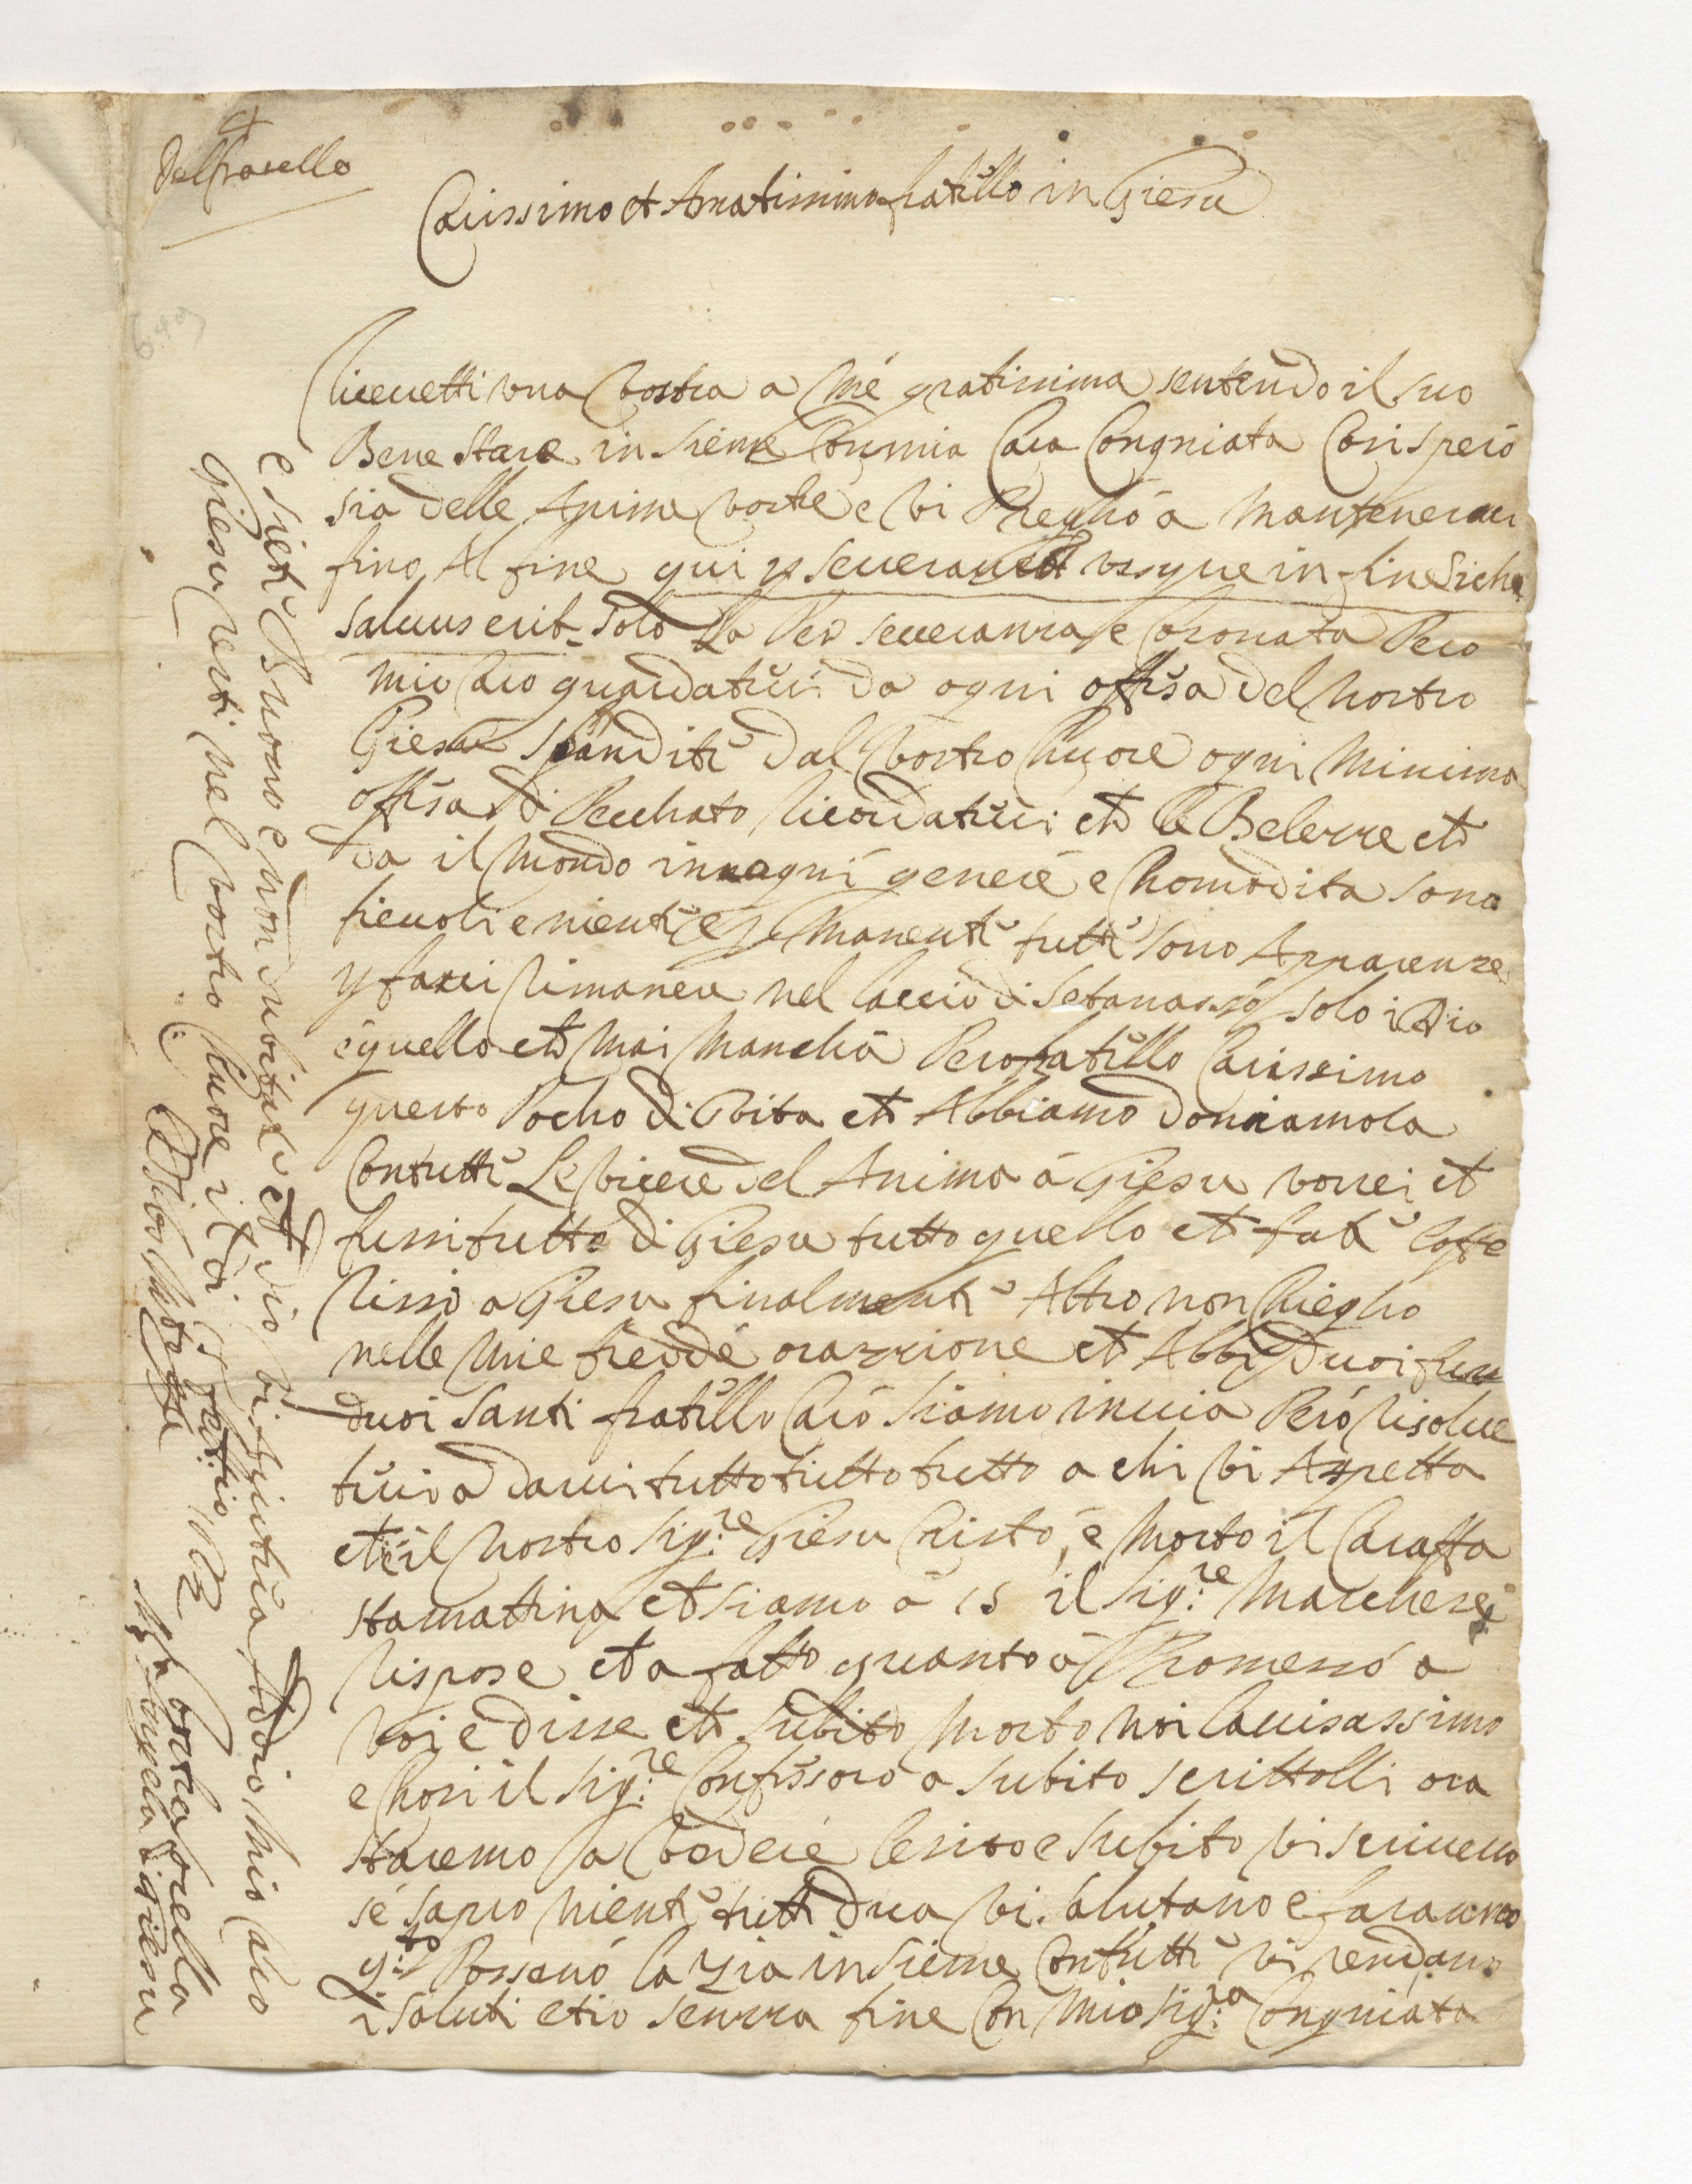 Carissimo et Amatissimo fratello in Giesu
Riceuetti una vostra a me gratissima sentendo il suo
Bene stare in sieme con mia Cara Congniata Cosi spero
sia delle Anime vostre e vi Pregho a mantenerui
fino Al fine qui perseuerauit usque in fine
saluus erit solo la Perseueranza e Coronata Pero
mio Caro guardateui da ogni offesa del Nostro
Giesu dal vostro Chuore ogni Minima
offesa di Pecchato Ricordateui che le Belezze che
da il Mondo innogni genere e Chomodita sono
fieuoli e niente manente tutte sono Apparenze
per farci Rimanere nel laccio di Setanasso solo idio
e quello che Mai Mancha Pero fratello Carissimo
questo Pocho di Vita che Abbiamo doniamola
Con tutte Le vicere del Animo a Giesu vorrei che
fussi tutto di Giesu tutto quello che fate
a Giesu finalmente Altro non Chiegho
nelle Mie fredde orazzione che
duoi Santi fratello Caro Siamo in uia Pero Risolue
teui a darui tutto tutto tutto a chi vi Aspetta
che e il Nostro Sig:re Giesu Cristo, e Morto il Caraffa
stamattina che siamo a 15 il Sig:re Marchese
Rispose che a fatto quanto a Promesso a
Voi e disse che subito Morto noi lauisassimo
e Chosi il Sig:re Confessoro a subito scrittolli ora
staremo a Vedere lesito e subito vi scriuerro
se sapro Niente tutti dua vi salutano e faranno
q:to Possano la Zia in sieme Con tutte vi rendano
i saluti et io senzza fine Con Mia Sig:ra Congniata
e siate Buono e Non dubitate che Dio vi Aiutera, Addio Mio Caro
Giesu resti nel vostro Chuore
Vostra sorella
di Giesu